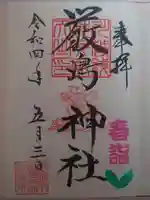 奉拝
厳島神社
春詣
令和四年
五月三日